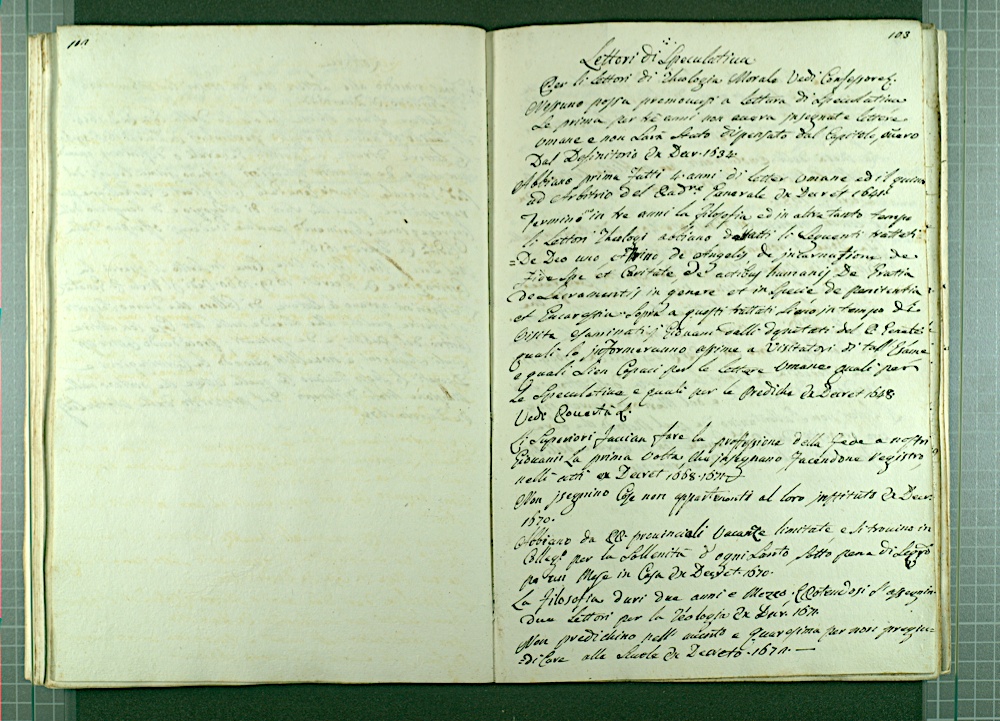 103
Lettori di Speculativa
Per li lettori di Theologia Morale Vedi Confessori
Nessuno possa promoversi a lettura di Speculativa
Se prima per tre anni non averà insegnate lettere
umane e non sarà stato dispensato dal Capitolo, overo
Dal Definitorio Ex Decr. 1634.
Abbiano prima tutti 4 anni di letter umane ed il quinto
ad Arbitrio del Padre Generale Ex Decret 1641.
Terminò in tre anni la filosofia ed in altretanto tempo
li lettori Theologi abbiano dettatti li seguenti trattati
De Deo uno et trino de Angelis de incarnatione de
Fide Spe et Caritate de actibus humanis De Gratia
De Sacramentis in genere et in specie de penitentia
et Eucarestia. Sopra a questi trattati siano in tempo di
Visita esaminati i Giovani dalli deputati del P. Generale
quali lo informeranno assime a Visitatori di tall' Esame
e quali sien Capaci per le lettere umane quali per
le Speculative e quali per le prediche Ex Decret 1648
Vedi
Li Superiori faccian fare la professione della fede a nostri
Giovani la prima volta che insegnano, facendone registro
nelli atti ex Decret 1668. 1671.
Non insegnino Cose non appartenenti al loro instituto Ex Decr.
1670.
Abbiano da PP. provinciali Vacanze limitate e si trovino in
Colleg. per la sollenità d' ogni Santo sotto pena di
per un Mese in Casa Ex Decret. 1670.
La filosofia duri due anni e Mezzo. Potendosi s' assegnin
due lettori per la Teologia Ex Decr. 1671.
Non predichino nell' avento e Quaresima per non pregiu=
=dicare alle Scuole Ex Decreto. 1671.